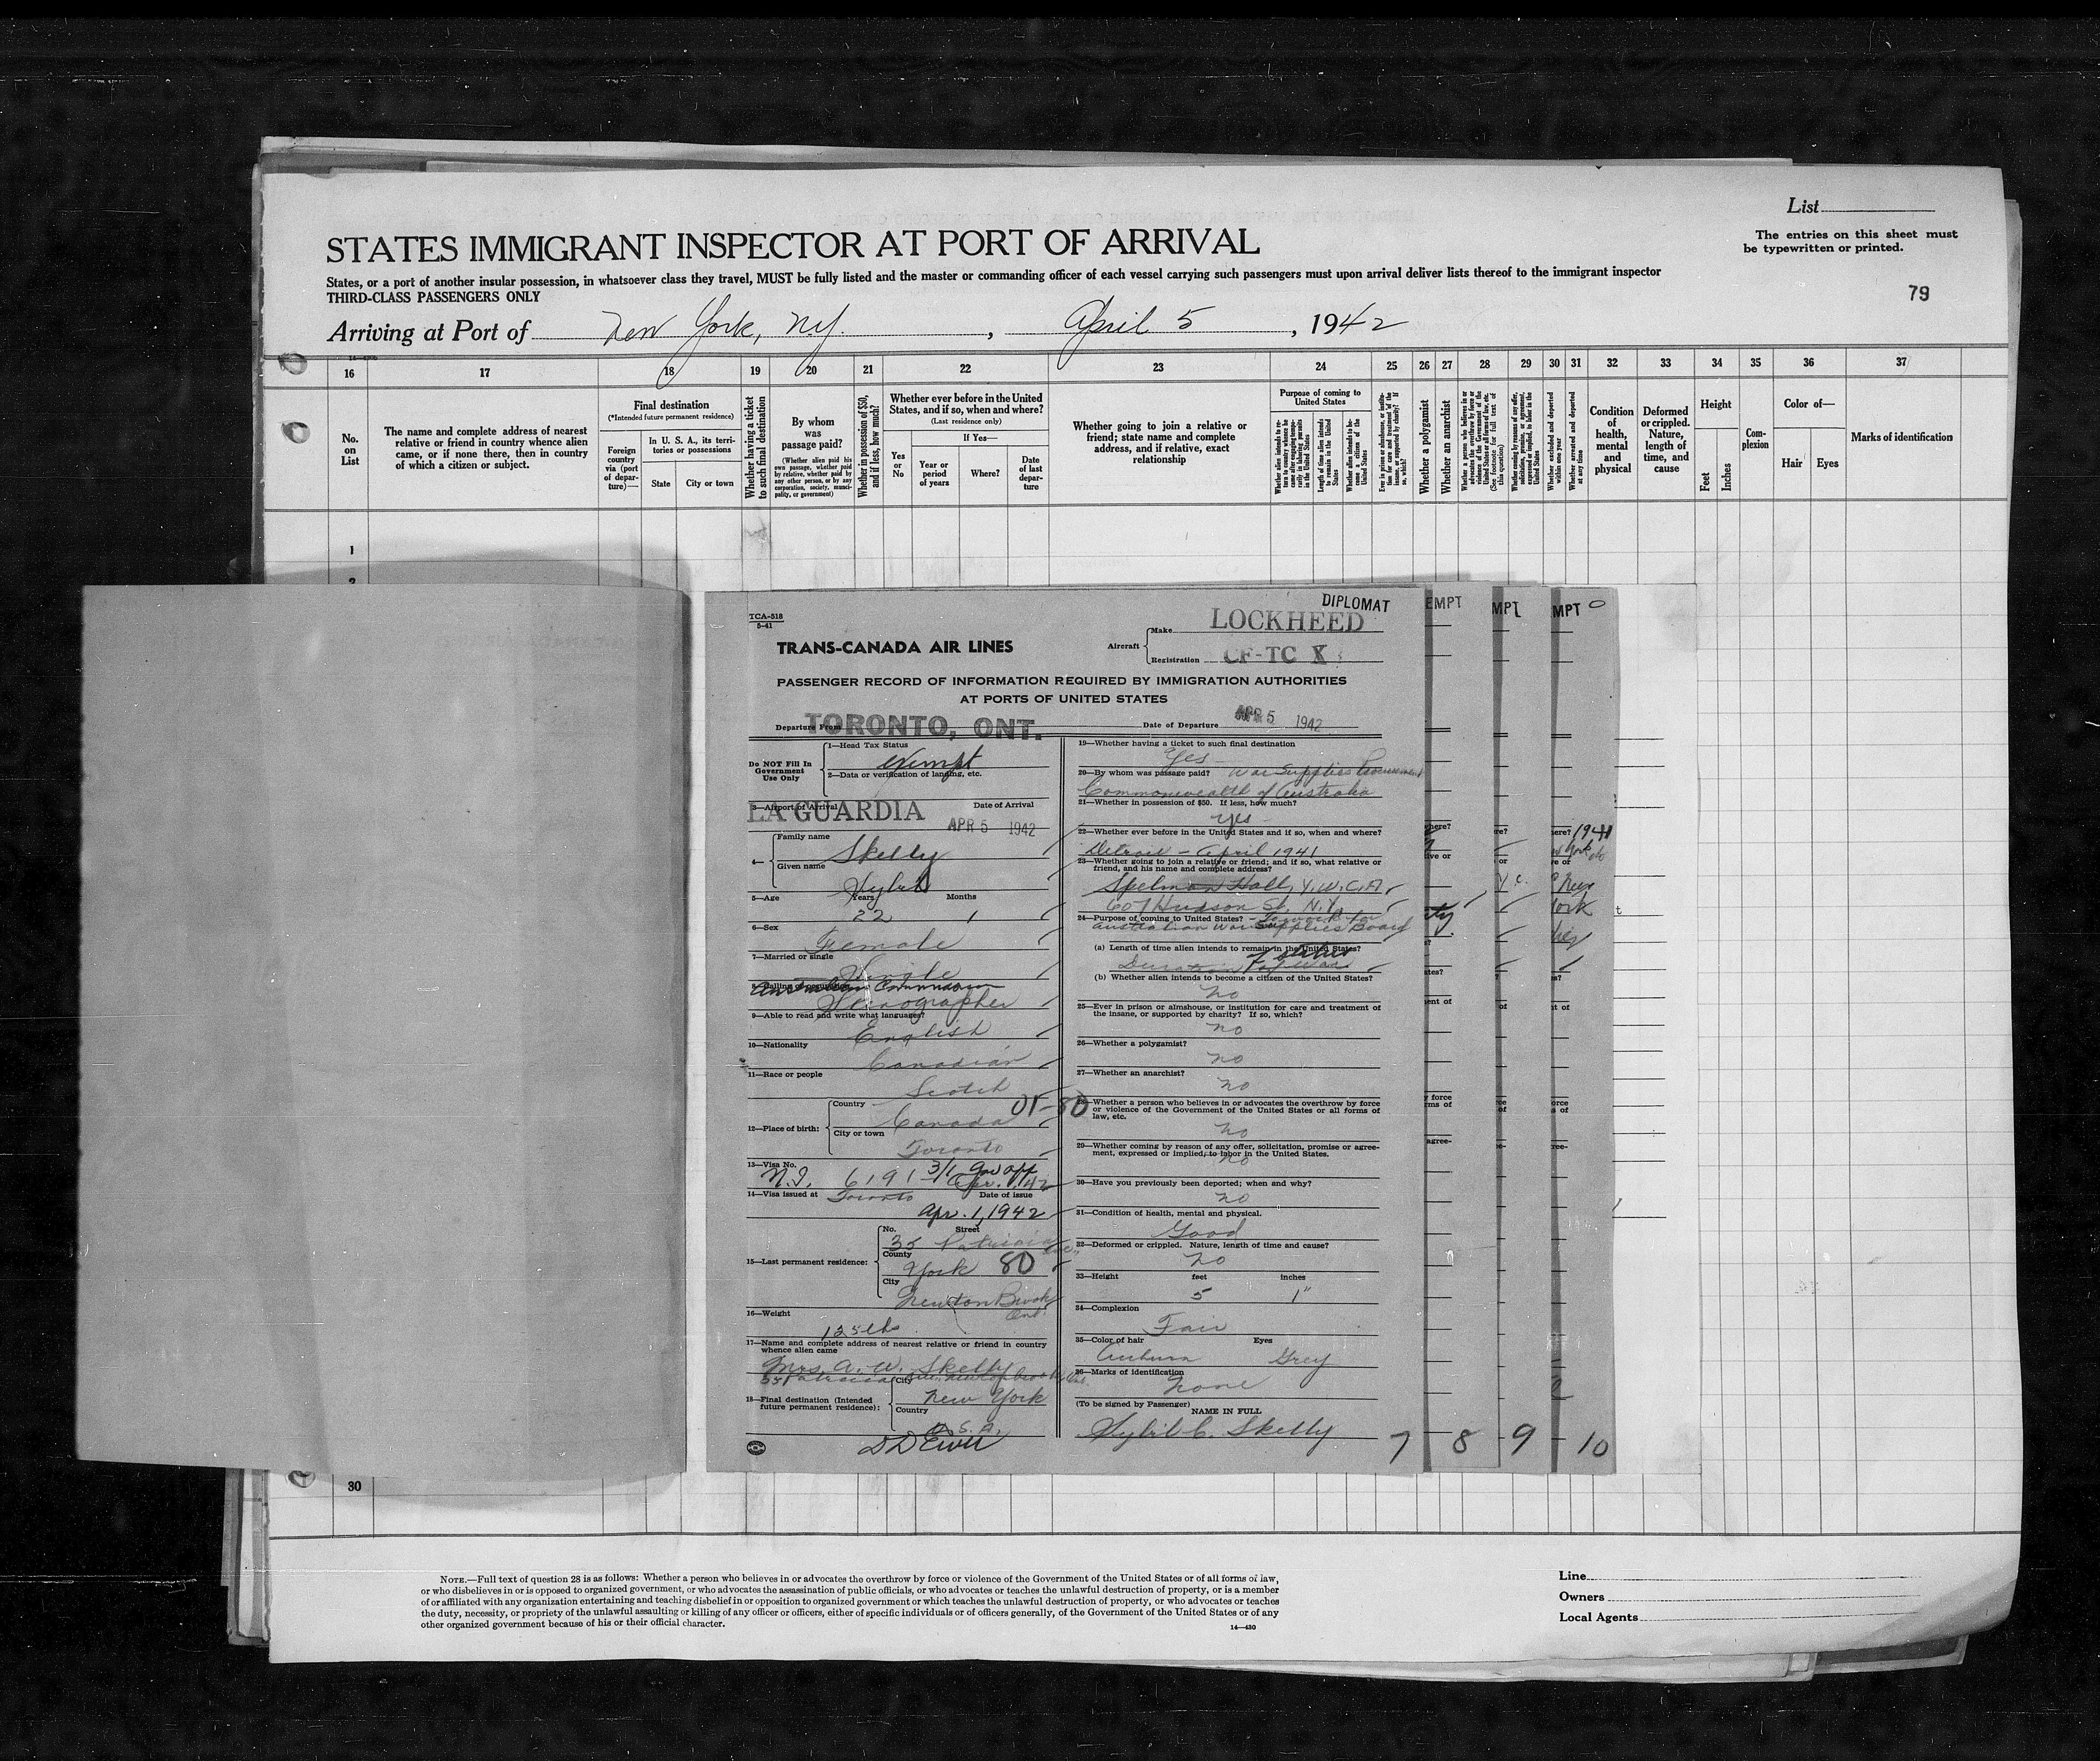 List
The entries on this sheet must
be typewritten or printed.
STATES IMMIGRANT INSPECTOR AT PORT OF ARRIVAL
States, or a port of another insular possession, in whatsoever class they travel, MUST be fully listed and the master or commanding officer of each vessel carrying such passengers must upon arrival deliver lists thereof to the immigrant inspector
THIRD-CLASS PASSENGERS ONLY
79
Arriving at Port of New York, N.Y. , April 5 , 1942
16 17 18 19 20 21 22 23 24 25 26 27 28 29 30 31 32 33 34 35 36 37
No. on List
The name and complete address of nearest
relative or friend in country whence alien
came, or if none there, then in country
of which a citizen or subject.
Final destination
(*Intended future permanent residence)
Foreign country via (port of departure)—
In U. S. A., its territories or possessions
State
City or town
Whether having a ticket to such final destination
By whom was passage paid?
(Whether alien paid his own passage, whether paid by relative, whether paid by any other person, or by any corporation, society, municipality, or government)
Whether in possession of $50, and if less, how much?
Whether ever before in the United
States, and if so, when and where?
(Last residence only)
Yes or No
If Yes—
Year or period of years
Where?
Date of last departure
Whether going to join a relative or
friend; state name and complete
address, and if relative, exact
relationship
Purpose of coming to United States
Whether a polygamist
Whether an anarchist
Condition of health, mental and physical
Deformed or crippled. Nature, length of time, and cause
Height
Feet
Inches
Complexion
Color of—
Hair
Eyes
Marks of identification
1
2
30
TCA-518
5-41
TRANS-CANADA AIR LINES
DIPLOMAT
Aircraft
Make LOCKHEED
Registration CF-TC X
PASSENGER RECORD OF INFORMATION REQUIRED BY IMMIGRATION AUTHORITIES
AT PORTS OF UNITED STATES
Departure From TORONTO, ONT.
Date of Departure APR 5 1942
Do NOT Fill In
Government
Use Only
1—Head Tax Status
exempt
2—Data or verification of landing, etc.
3—Airport of Arrival Date of Arrival
LA GUARDIA APR 5 1942
4—
Family name
Skelly
Given name
Sybil
5—Age Years Months
22 1
6—Sex
Female
7—Married or single
Single
8—Calling or occupation
Stenographer
9—Able to read and write what languages?
English
10—Nationality
Canadian
11—Race or people
Scotch
12—Place of birth:
Country
Canada
City or town
Toronto
13—Visa No.
6191 3/1 Gov off
Apr. 1. 42
14—Visa issued at Toronto Date of issue
Apr. 1, 1942
15—Last permanent residence:
No. Street
35 Patricia Ave.
County
York 80
City
Newton Brook
Ont.
16—Weight
125 lbs
17—Name and complete address of nearest relative or friend in country
whence alien came
Mrs. A. W. Skelly
18—Final destination (Intended
future permanent residence):
City
New York
Country
U.S.A.
19—Whether having a ticket to such final destination
Yes
20—By whom was passage paid? War Supplies Procurement
Commonwealth of Australia
21—Whether in possession of $50. If less, how much?
yes
22—Whether ever before in the United States and if so, when and where?
Detroit - April 1941
23—Whether going to join a relative or friend; and if so, what relative or
friend, and his name and complete address?
Spelman Hall, Y.W.C.A.
607 Hudson St. N.Y.
24—Purpose of coming to United States? - To work for
Australian War Supplies Board
(a) Length of time alien intends to remain in the United States?
Duration of War
(b) Whether alien intends to become a citizen of the United States?
no
25—Ever in prison or almshouse, or institution for care and treatment of
the insane, or supported by charity? If so, which?
no
26—Whether a polygamist?
no
27—Whether an anarchist?
no
28—Whether a person who believes in or advocates the overthrow by force
or violence of the Government of the United States or all forms of
law, etc.
no
29—Whether coming by reason of any offer, solicitation, promise or agree-
ment, expressed or implied, to labor in the United States.
no
30—Have you previously been deported; when and why?
no
31—Condition of health, mental and physical.
Good
32—Deformed or crippled. Nature, length of time and cause?
no
33—Height feet inches
5 1"
34—Complexion
Fair
35—Color of hair Eyes
Auburn Grey
36—Marks of identification
none
(To be signed by Passenger)
NAME IN FULL
Sybil C. Skelly
7 8 9 10
NOTE.—Full text of question 28 is as follows: Whether a person who believes in or advocates the overthrow by force or violence of the Government of the United States or of all forms of law,
or who disbelieves in or is opposed to organized government, or who advocates the assassination of public officials, or who advocates or teaches the unlawful destruction of property, or is a member
of or affiliated with any organization entertaining and teaching disbelief in or opposition to organized government or which teaches the unlawful destruction of property, or who advocates or teaches
the duty, necessity, or propriety of the unlawful assaulting or killing of any officer or officers, either of specific individuals or of officers generally, of the Government of the United States or of any
other organized government because of his or their official character.
14—430
Line
Owners
Local Agents